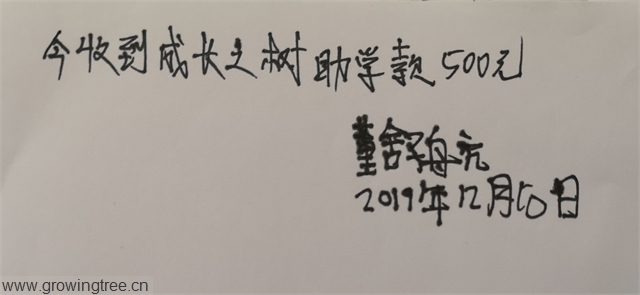 今收到成长之树助学款500元
2019年12月10日
www.growingtree.cn